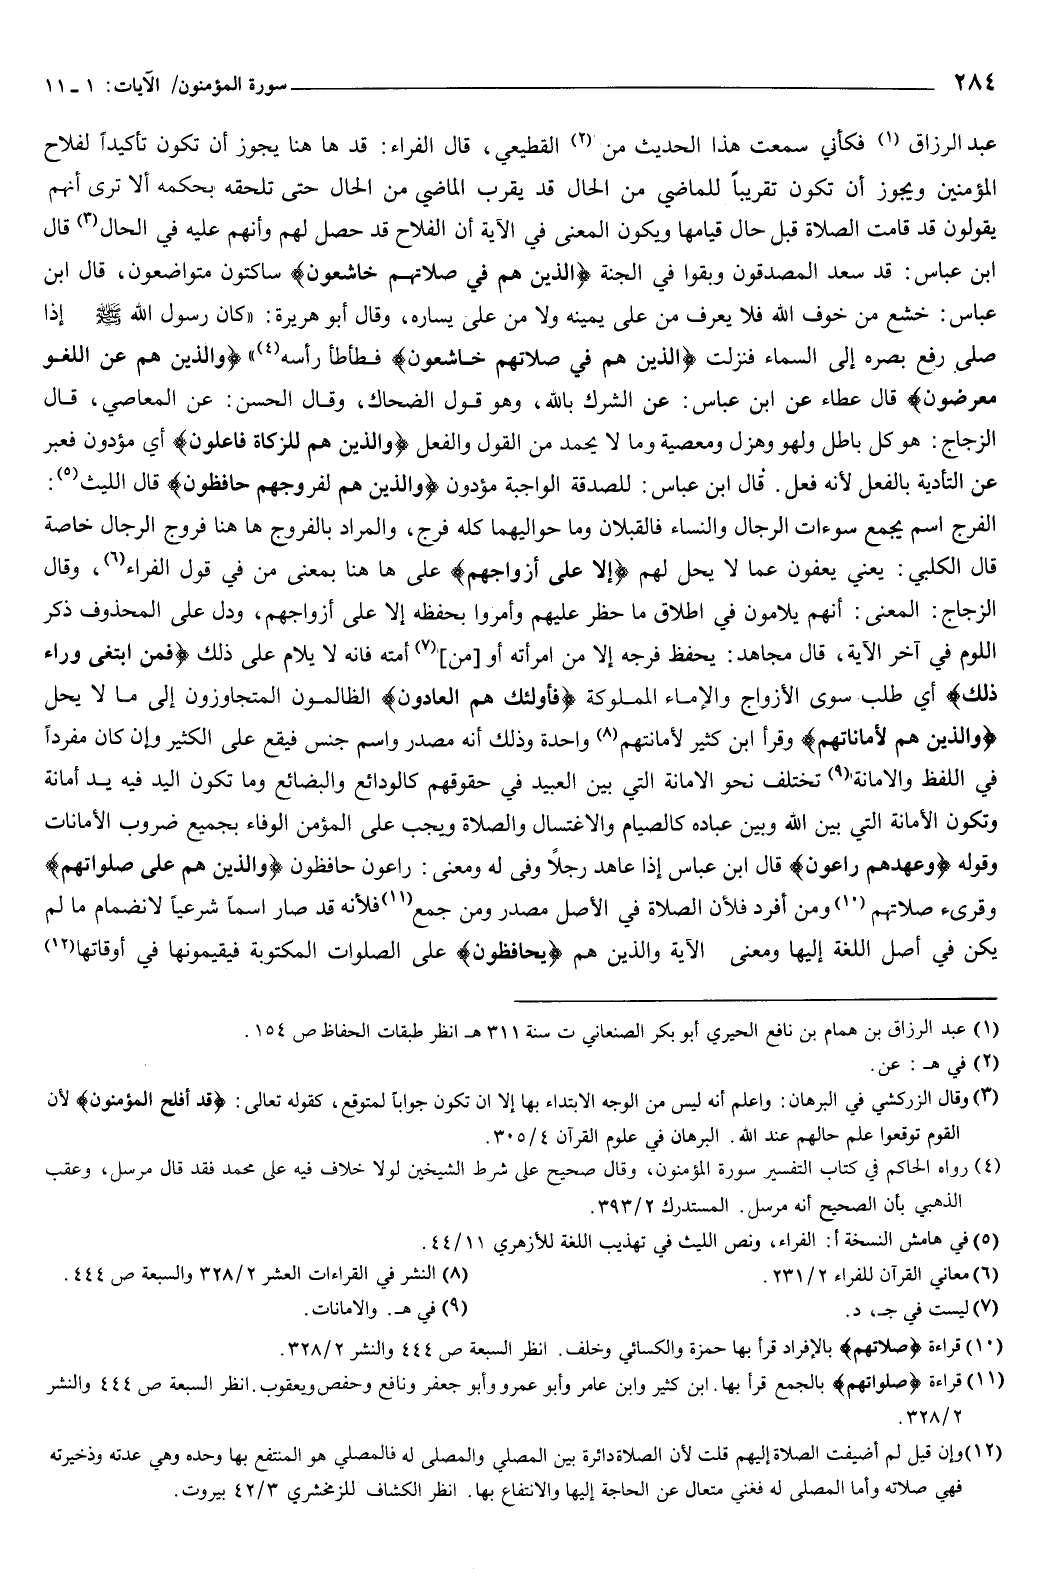 ٢٨٤ سورة المؤمنون/ الآيات: ١ ـ ١١
عبد الرزاق (١) فكأني سمعت هذا الحديث من (٢) القطيعي، قال الفراء: قد ها هنا يجوز أن تكون تأكيداً لفلاح
المؤمنين ويجوز أن تكون تقريباً للماضي من الحال قد يقرب الماضي من الحال حتى تلحقه بحكمه ألا ترى أنهم
يقولون قد قامت الصلاة قبل حال قيامها ويكون المعنى في الآية أن الفلاح قد حصل لهم وأنهم عليه في الحال(٣) قال
ابن عباس: قد سعد المصدقون وبقوا في الجنة ﴿الذين هم في صلاتهم خاشعون﴾ ساكتون متواضعون، قال ابن
عباس: خشع من خوف الله فلا يعرف من على يمينه ولا من على يساره، وقال أبو هريرة: «كان رسول الله ﷺ إذا
صلى رفع بصره إلى السماء فنزلت ﴿الذين هم في صلاتهم خاشعون﴾ فطأطأ رأسه(٤)» ﴿والذين هم عن اللغو
معرضون﴾ قال عطاء عن ابن عباس: عن الشرك بالله، وهو قول الضحاك، وقال الحسن: عن المعاصي، قال
الزجاج: هو كل باطل ولهو وهزل ومعصية وما لا يحمد من القول والفعل ﴿والذين هم للزكاة فاعلون﴾ أي مؤدون فعبر
عن التأدية بالفعل لأنه فعل. قال ابن عباس: للصدقة الواجبة مؤدون ﴿والذين هم لفروجهم حافظون﴾ قال الليث(٥):
الفرج اسم يجمع سوءات الرجال والنساء فالقبلان وما حواليهما كله فرج، والمراد بالفروج ها هنا فروج الرجال خاصة
قال الكلبي: يعني يعفون عما لا يحل لهم ﴿إلا على أزواجهم﴾ على ها هنا بمعنى من في قول الفراء(٦)، وقال
الزجاج: المعنى: أنهم يلامون في اطلاق ما حظر عليهم وأمروا بحفظه إلا على أزواجهم، ودل على المحذوف ذكر
اللوم في آخر الآية، قال مجاهد: يحفظ فرجه إلا من امرأته أو [من](٧) أمته فانه لا يلام على ذلك ﴿فمن ابتغى وراء
ذلك﴾ أي طلب سوى الأزواج والإماء المملوكة ﴿فأولئك هم العادون﴾ الظالمون المتجاوزون إلى ما لا يحل
﴿والذين هم لأماناتهم﴾ وقرأ ابن كثير لأمانتهم(٨) واحدة وذلك أنه مصدر واسم جنس فيقع على الكثير وإن كان مفرداً
في اللفظ والامانة(٩) تختلف نحو الامانة التي بين العبيد في حقوقهم كالودائع والبضائع وما تكون اليد فيه يد أمانة
وتكون الأمانة التي بين الله وبين عباده كالصيام والاغتسال والصلاة ويجب على المؤمن الوفاء بجميع ضروب الأمانات
وقوله ﴿وعهدهم راعون﴾ قال ابن عباس إذا عاهد رجلاً وفى له ومعنى: راعون حافظون ﴿والذين هم على صلواتهم﴾
وقرىء صلاتهم (١٠) ومن أفرد فلأن الصلاة في الأصل مصدر ومن جمع(١١) فلأنه قد صار اسماً شرعياً لانضمام ما لم
يكن في أصل اللغة إليها ومعنى الآية والذين هم ﴿يحافظون﴾ على الصلوات المكتوبة فيقيمونها في أوقاتها(١٢)
(١) عبد الرزاق بن همام بن نافع الحيري أبو بكر الصنعاني ت سنة ٣١١ هـ انظر طبقات الحفاظ ص ١٥٤.
(٢) في هـ : عن.
(٣) وقال الزركشي في البرهان: واعلم أنه ليس من الوجه الابتداء بها إلا ان تكون جواباً لمتوقع، كقوله تعالى: ﴿قد أفلح المؤمنون﴾ لأن
القوم توقعوا علم حالهم عند الله. البرهان في علوم القرآن ٣٠٥/٤.
(٤) رواه الحاكم في كتاب التفسير سورة المؤمنون، وقال صحيح على شرط الشيخين لولا خلاف فيه على محمد فقد قال مرسل، وعقب
الذهبي بأن الصحيح أنه مرسل. المستدرك ٣٩٣/٢.
(٥) في هامش النسخة أ: الفراء، ونص الليث في تهذيب اللغة للأزهري ٤٤/١١.
(٦) معاني القرآن للفراء ٢٣١/٢. (٨) النشر في القراءات العشر ٣٢٨/٢ والسبعة ص ٤٤٤.
(٧) ليست في جـ، د. (٩) في هـ. والامانات.
(١٠) قراءة ﴿صلاتهم﴾ بالإفراد قرأ بها حمزة والكسائي وخلف. انظر السبعة ص ٤٤٤ والنشر ٣٢٨/٢.
(١١) قراءة ﴿صلواتهم﴾ بالجمع قرأ بها. ابن كثير وابن عامر وأبو عمرو وأبو جعفر ونافع وحفص ويعقوب. انظر السبعة ص ٤٤٤ والنشر
٣٢٨/٢.
(١٢) وإن قيل لم أضيفت الصلاة إليهم قلت لأن الصلاة دائرة بين المصلي والمصلى له فالمصلي هو المنتفع بها وحده وهي عدته وذخيرته
فهي صلاته وأما المصلى له فغني متعال عن الحاجة إليها والانتفاع بها. انظر الكشاف للزمخشري ٤٢/٣ بيروت.